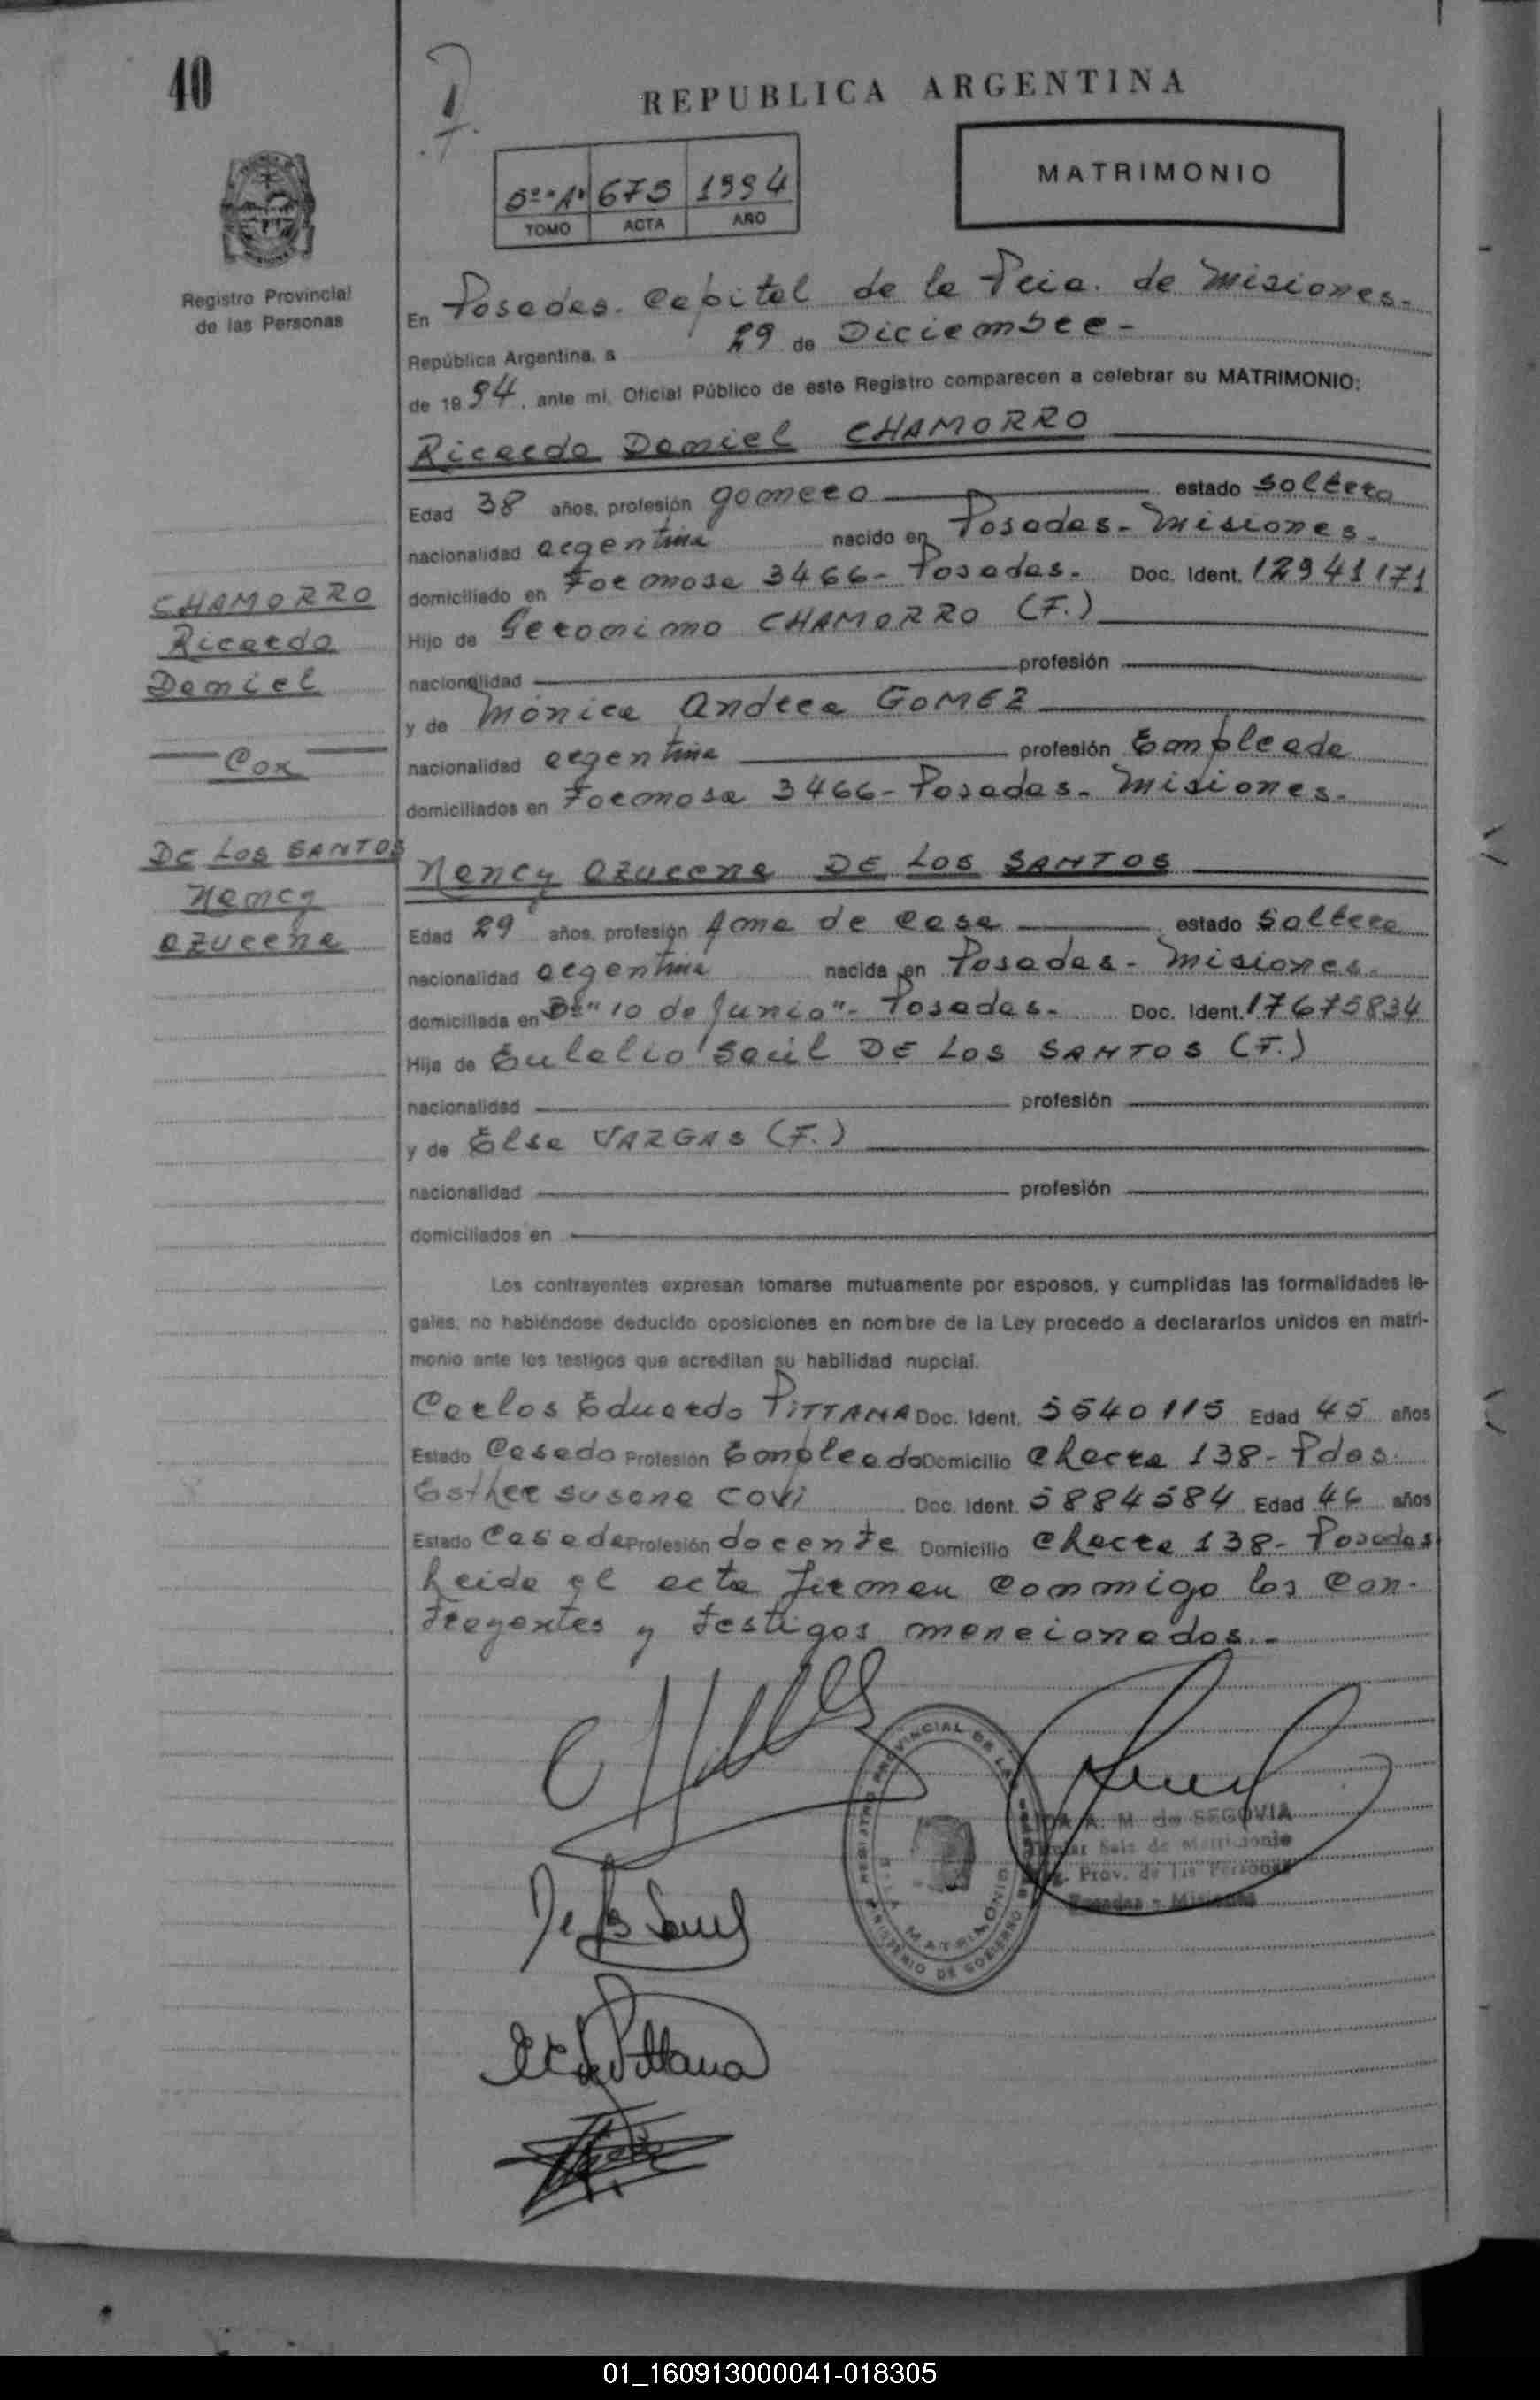 40
REPUBLICA ARGENTINA
MATRIMONIO
675 1994
TOMO ACTA AÑO
Registro Provincial
de las Personas
En Posadas. Capital de la Pcia. de Misiones.-
República Argentina, a 29 de Diciembre-
de 1994, ante mi, Oficial Público de este Registro comparecen a celebrar su MATRIMONIO:
Ricardo Daniel CHAMORRO
Edad 38 años, profesión gomero estado soltero
nacionalidad argentina nacido en Posadas- Misiones.-
domiciliado en Formosa 3466- Posadas. Doc. Ident. 12941171
Hijo de Geronimo CHAMORRO (F.)
nacionalidad profesión
y de Mónica Andrea GOMEZ
nacionalidad argentina profesión Empleada
domiciliados en Formosa 3466- Posadas- Misiones.
CHAMORRO
Ricardo
Daniel
Con
DE LOS SANTOS
Nancy
Azucena
Nancy Azucena DE LOS SANTOS
Edad 29 años, profesión Ama de casa estado soltera
nacionalidad argentina nacida en Posadas- Misiones.
domiciliada en B° "10 de Junio"- Posadas. Doc. Ident. 17675834
Hija de Eulalio Saúl DE LOS SANTOS (F.)
nacionalidad profesión
y de Elsa VARGAS (F.)
nacionalidad profesión
domiciliados en
Los contrayentes expresan tomarse mutuamente por esposos, y cumplidas las formalidades le-
gales, no habiéndose deducido oposiciones en nombre de la Ley procedo a declararlos unidos en matri-
monio ante los testigos que acreditan su habilidad nupcial.
Carlos Eduardo PITTANA Doc. Ident. 5540115 Edad 45 años
Estado Casado Profesión Empleado Domicilio Chacra 138- Pdas.
Esther Susana COVI Doc. Ident. 5884584 Edad 46 años
Estado Casada Profesión docente Domicilio Chacra 138- Posadas
Leida el acta firman conmigo los con-
trayentes y testigos mencionados.-
REGISTRO PROVINCIAL DE LAS
MATRIMONIO
MINISTERIO DE GOBIERNO
A. M. de SEGOVIA
de Matrimonio
Prov. de las Personas
Posadas - Misiones
De los Santos
de Pittana
01_160913000041-018305